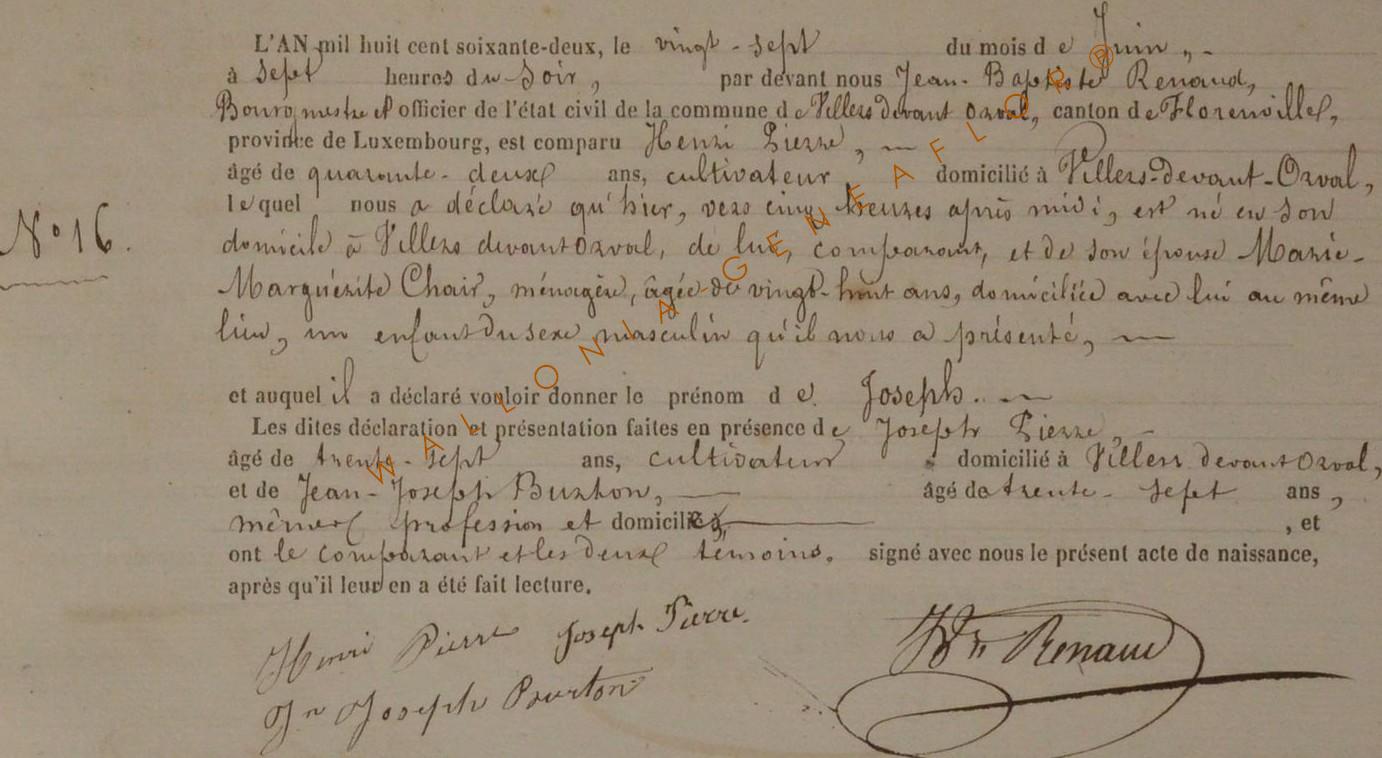 L'AN mil huit cent soixante-deux, le vingt-sept du mois de Juin,
à sept heures du soir, par devant nous Jean-Baptiste Renaud,
Bourgmestre et officier de l'état civil de la commune de Villers devant orval, canton de Florenville,
province de Luxembourg, est comparu Henri Pierre,
âgé de quarante-deux ans, cultivateur domicilié à Villers-devant-Orval,
lequel nous a déclaré qu'hier, vers cinq heures après midi, est né en son
domicile à Villers devant Orval, de lui, comparant, et de son épouse Marie-
Marguérite Chair, ménagère, âgée de vingt-huit ans, domiciliée avec lui au même
N° 16.
lieu, un enfant du sexe masculin qu'il nous a présenté,
et auquel il a déclaré vouloir donner le prénom de Joseph.
Les dites déclaration et présentation faites en présence de Joseph Pierre,
âgé de trente-sept ans, cultivateur domicilié à Villers devant Orval,
et de Jean-Joseph Burton, âgé de trente-sept ans,
mêmes profession et domicile, , et
ont le comparant et les deux témoins, signé avec nous le présent acte de naissance,
après qu'il leur en a été fait lecture.
Henri Pierre Joseph Pierre.
Jn Joseph Burton
Renaud
WALLONIA GENEAFLOR®